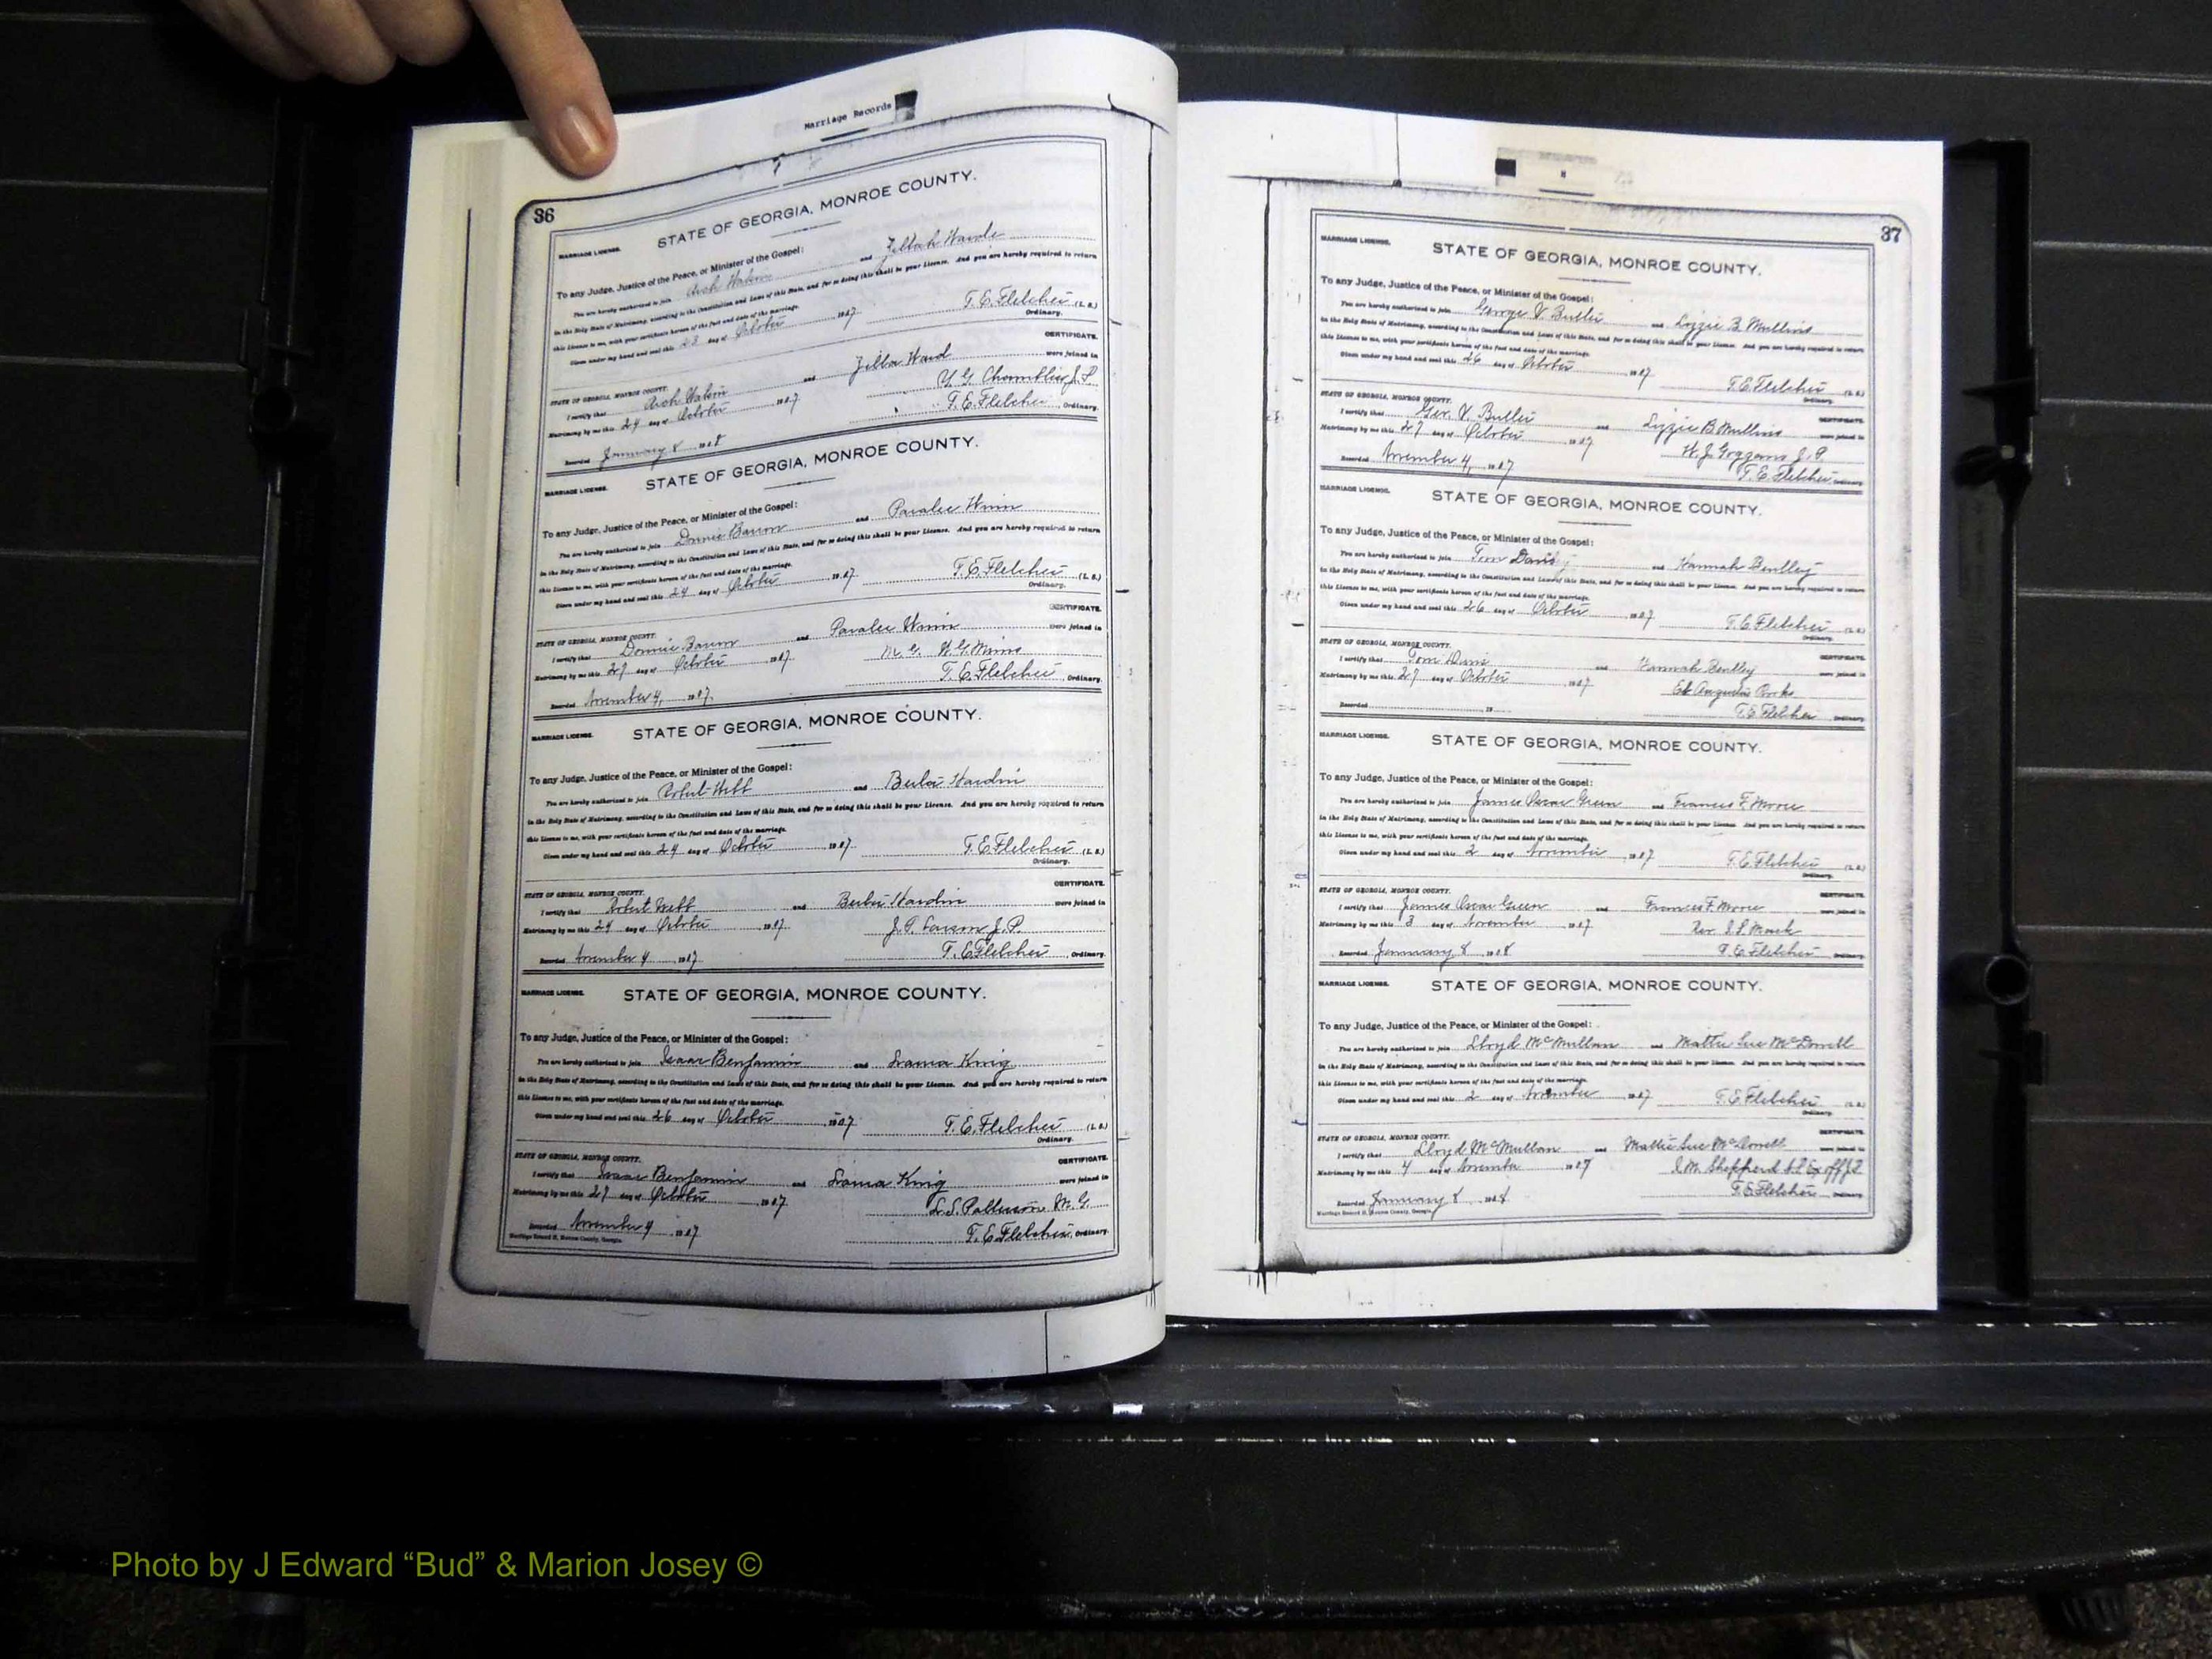 Marriage Records
36
STATE OF GEORGIA, MONROE COUNTY.
MARRIAGE LICENSE.
To any Judge, Justice of the Peace, or Minister of the Gospel:
You are hereby authorized to join Arch Wakin and Zellah Warde
in the Holy State of Matrimony, according to the Constitution and Laws of this State, and for so doing this shall be your License. And you are hereby required to return
this License to me, with your certificate hereon of the fact and date of the marriage.
Given under my hand and seal this 23 day of October 1907. T. E. Fletcher (L. S.)
Ordinary.
STATE OF GEORGIA, MONROE COUNTY. CERTIFICATE.
I certify that Arch and Zella Ward were joined in
Matrimony by me this 24 day of October 1907 J. P.
Recorded January 8 1908 T. E. Fletcher, Ordinary.
STATE OF GEORGIA, MONROE COUNTY.
MARRIAGE LICENSE.
To any Judge, Justice of the Peace, or Minister of the Gospel:
You are hereby authorized to join Donnie Barron and Paralee Winn
in the Holy State of Matrimony, according to the Constitution and Laws of this State, and for so doing this shall be your License. And you are hereby required to return
this License to me, with your certificate hereon of the fact and date of the marriage.
Given under my hand and seal this 24 day of October 1907. T. E. Fletcher (L. S.)
Ordinary.
STATE OF GEORGIA, MONROE COUNTY. CERTIFICATE.
I certify that Donnie Barron and Paralee Winn were joined in
Matrimony by me this 27 day of October 1907. M. G.
Recorded November 4, 1907. T. E. Fletcher, Ordinary.
MARRIAGE LICENSE. STATE OF GEORGIA, MONROE COUNTY.
To any Judge, Justice of the Peace, or Minister of the Gospel:
You are hereby authorized to join Robert Webb and Berta Hardin
in the Holy State of Matrimony, according to the Constitution and Laws of this State, and for so doing this shall be your License. And you are hereby required to return
this License to me, with your certificate hereon of the fact and date of the marriage.
Given under my hand and seal this 24 day of October 1907. T. E. Fletcher (L. S.)
Ordinary.
STATE OF GEORGIA, MONROE COUNTY. CERTIFICATE.
I certify that Robert Webb and Berta Hardin were joined in
Matrimony by me this 24 day of October 1907. J. P. Lawson J. P.
Recorded November 4 1907 T. E. Fletcher, Ordinary.
MARRIAGE LICENSE. STATE OF GEORGIA, MONROE COUNTY.
To any Judge, Justice of the Peace, or Minister of the Gospel:
You are hereby authorized to join Isaac Benjamin and King
in the Holy State of Matrimony, according to the Constitution and Laws of this State, and for so doing this shall be your License. And you are hereby required to return
this License to me, with your certificate hereon of the fact and date of the marriage.
Given under my hand and seal this 26 day of October 1907 T. E. Fletcher (L. S.)
Ordinary.
STATE OF GEORGIA, MONROE COUNTY. CERTIFICATE.
I certify that Isaac Benjamin and King were joined in
Matrimony by me this 27 day of October 1907. L. S. Patterson M. G.
Recorded November 4 1907 T. E. Fletcher, Ordinary.
Marriage Record H, Monroe County, Georgia.
37
MARRIAGE LICENSE. STATE OF GEORGIA, MONROE COUNTY.
To any Judge, Justice of the Peace, or Minister of the Gospel:
You are hereby authorized to join George V. Butler and Lizzie B. Mullins
in the Holy State of Matrimony, according to the Constitution and Laws of this State, and for so doing this shall be your License. And you are hereby required to return
this License to me, with your certificate hereon of the fact and date of the marriage.
Given under my hand and seal this 26 day of October 1907 T. E. Fletcher (L. S.)
Ordinary.
STATE OF GEORGIA, MONROE COUNTY. CERTIFICATE.
I certify that Geo. V. Butler and Lizzie B Mullins were joined in
Matrimony by me this 27 day of October 1907 W. J. Goggans J. P.
Recorded November 4, 1907 T. E. Fletcher Ordinary.
MARRIAGE LICENSE. STATE OF GEORGIA, MONROE COUNTY.
To any Judge, Justice of the Peace, or Minister of the Gospel:
You are hereby authorized to join Tom Davis and Hannah Bentley
in the Holy State of Matrimony, according to the Constitution and Laws of this State, and for so doing this shall be your License. And you are hereby required to return
this License to me, with your certificate hereon of the fact and date of the marriage.
Given under my hand and seal this 26 day of October 1907 T. E. Fletcher (L. S.)
Ordinary.
STATE OF GEORGIA, MONROE COUNTY. CERTIFICATE.
I certify that Tom Davis and Hannah Bentley were joined in
Matrimony by me this 27 day of October 1907. Augustus
Recorded 19 T. E. Fletcher Ordinary.
MARRIAGE LICENSE. STATE OF GEORGIA, MONROE COUNTY.
To any Judge, Justice of the Peace, or Minister of the Gospel:
You are hereby authorized to join James Oscar Green and Frances F. Moore
in the Holy State of Matrimony, according to the Constitution and Laws of this State, and for so doing this shall be your License. And you are hereby required to return
this License to me, with your certificate hereon of the fact and date of the marriage.
Given under my hand and seal this 2 day of November 1907 T. E. Fletcher (L. S.)
Ordinary.
STATE OF GEORGIA, MONROE COUNTY. CERTIFICATE.
I certify that James Oscar Green and Frances F. Moore were joined in
Matrimony by me this 3 day of November 1907 Rev.
Recorded January 8 1908 T. E. Fletcher Ordinary.
MARRIAGE LICENSE. STATE OF GEORGIA, MONROE COUNTY.
To any Judge, Justice of the Peace, or Minister of the Gospel:
You are hereby authorized to join Lloyd McMullan and Mattie Sue McDowell
in the Holy State of Matrimony, according to the Constitution and Laws of this State, and for so doing this shall be your License. And you are hereby required to return
this License to me, with your certificate hereon of the fact and date of the marriage.
Given under my hand and seal this 2 day of November 1907 T. E. Fletcher (L. S.)
Ordinary.
STATE OF GEORGIA, MONROE COUNTY. CERTIFICATE.
I certify that Lloyd McMullan and Mattie Sue McDowell were joined in
Matrimony by me this 4 day of November 1907 Shepherd
Recorded January 8 1908 T. E. Fletcher Ordinary.
Marriage Record H, Monroe County, Georgia.
Photo by J Edward “Bud” & Marion Josey ©